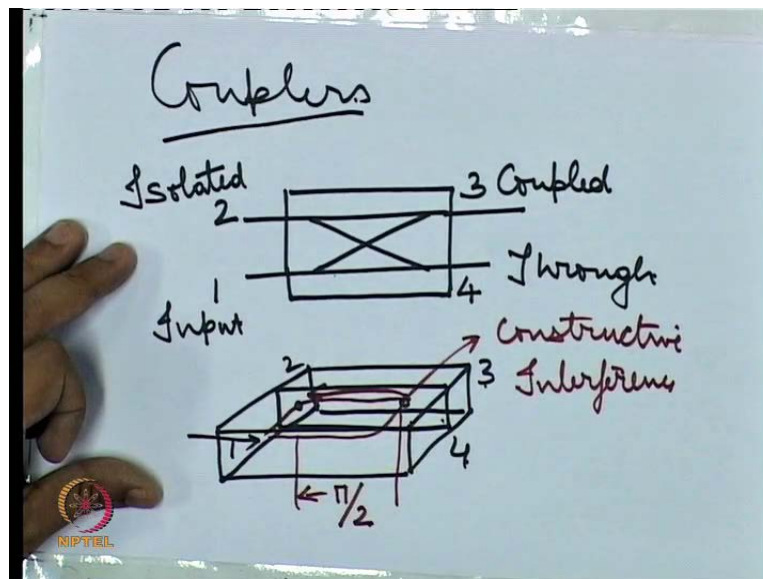 Couplers
Isolated 2
3 Coupled
1 Input
4 Through
Constructive Interference
2
3
1
4
π/2
NPTEL